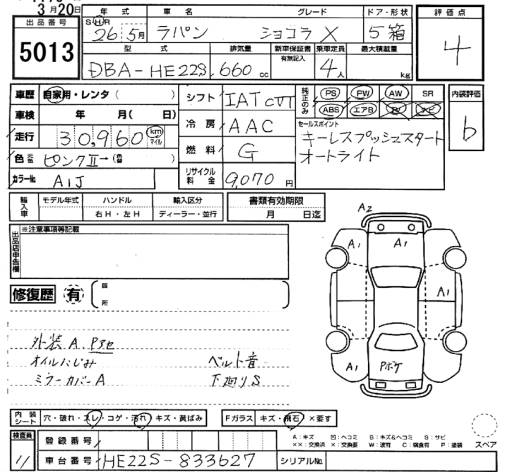 3月20日
出品番号
5013
年式 車名 グレード ドア・形状
S H R 26年5月 ラパン ショコラ X 5 箱
型式 排気量 新車保証書 有無記入 乗車定員 最大積載量
DBA-HE22S 660cc 4人 kg
評価点
4
車歴 自家用・レンタ( )
車検 年 月( 日)
走行 30,960 km マイル
色 ピンクⅡ→
カラーNo. A1J
シフト IAT CVT
冷房 AAC
燃料 G
リサイクル料金 9,070円
純正のみ PS PW AW SR
ABS エアB
セールスポイント
キーレスプッシュスタート
オートライト
内装評価
b
輸入車 モデル年式 ハンドル 輸入区分
右H・左H ディーラー・並行
書類有効期限
月 日迄
出品店申告欄 ※注意事項等記載
修復歴 有 箇所
外装A Pｷｾ
オイルにじみ ベルト音
ミラーカバーA 下廻りS
A2
A1 A1 A1
A1 A1
A1 Pボケ A1
内装シート 穴・破れ・スレ・コゲ・汚れ・キズ・黄ばみ
Fガラス キズ・飛石・×要す
A:キズ 凹:ヘコミ B:キズ&ヘコミ S:サビ
××:交換済 ×:交換要 W:波有 C:腐食有 P:塗装
スペア
検査員 11
登録番号
車台番号 HE22S-833627 シリアルNo.